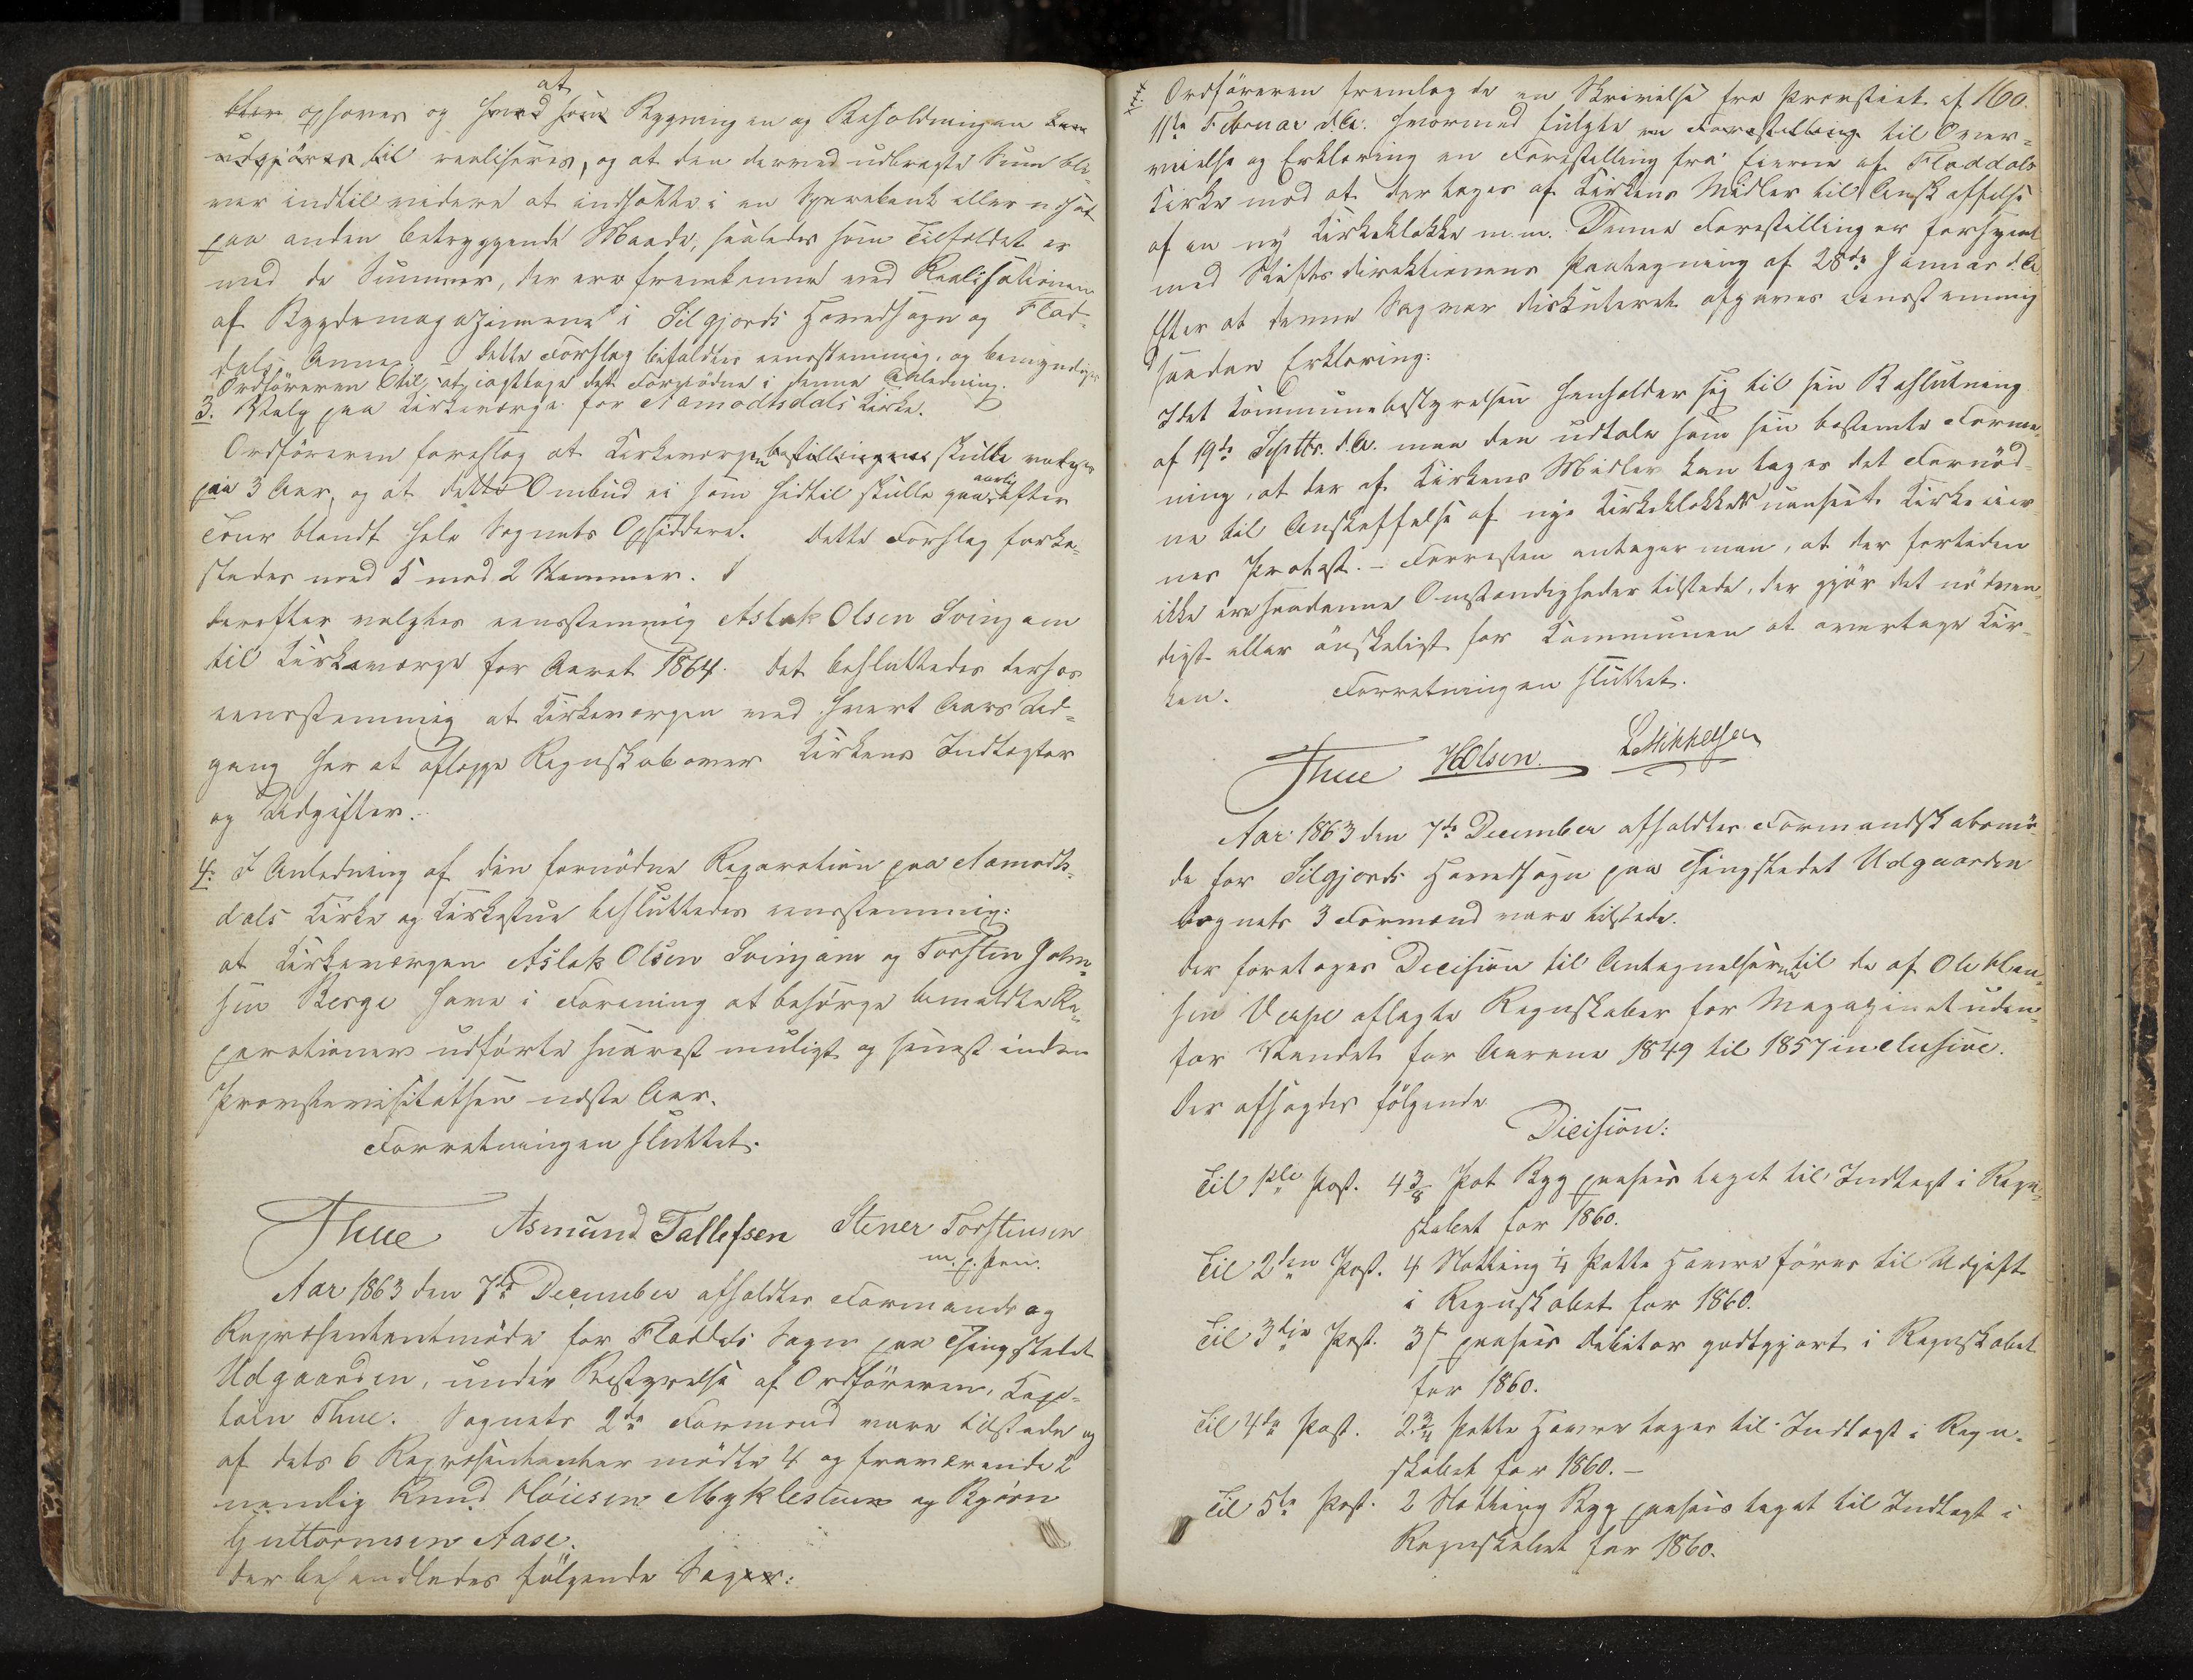 at
bliver ophæves og hvad som Bygningen og Beholdningen kan
udgjøres til realiseres, og at den derved udbragte Sum bli-
ver indtil videre at indsætte i en Sparebank eller udsat
paa anden betryggende Maade, saaledes som Tilfældet er
med de Summer, der ere fremkomne ved Realisationen
af Bygdemagazinerne i Silgjords Hovedsogn og Flad-
dals Annex. – Dette Forslag bifaldtes eensstemmig, og bemyndiges
Ordføreren til at iagttage det Fornødne i denne Anledning.
3. Valg paa Kirkeværge for Aamodtsdals Kirke.
Ordføreren foreslog at Kirkeværgen bestillingen skulle vælges
paa 3 Aar, og at dette Ombud ei som hidtil skulle gaae aarlig efter
Tour blandt hele Sognets Opsiddere. Dette Forslag forka-
stedes med 5 mod 2 Stemmer.
Derefter valgtes eensstemmig Aslak Olsen Svingam
til Kirkeværge for Aaret 1864. Det besluttedes derhos
eensstemmig at Kirkeværgen ved hvert Aars Ud-
gang har at aflægge Regnskab over Kirkens Indtægter
og Udgifter.
4. I Anledning af den fornødne Reparation paa Aamodts-
dals Kirke og Kirkestue besluttedes eensstemmig:
at Kirkeværgen Aslak Olsen Svingam og Torsten John-
sen Berge have i Forening at besørge bemeldte Re-
parationer udførte snarest muligt og senest inden
Provstevisitatsen næste Aar.
Forretningen sluttet.
Thue Asmund Tallefsen Stener Torstensen
m. p. Pen.
Aar 1863 den 7de December afholdtes Formands og
Repræsentantmøde for Fladdals Sogn paa Thingstedet
Udgaarden, under Bestyrelse af Ordføreren, Kap-
tain Thue. Sognets 2de Formænd vare tilstede og
af dets 6 Repræsentanter mødte 4 og fraværende 2
nemlig Knud Høiesen Myklestuen og Bjørn
Guttormsen Aase.
Der behandledes følgende Sager:
160.
1. Ordføreren fremlagde en Skrivelse fra Provstiet af
11te Februar d.A. hvormed fulgte en Forestilling til Over-
veielse og Erklæring en Forestilling fra Eierne af Fladdals
Kirke mod at der tages af Kirkens Midler til Anskaffelse
af en ny Kirkeklokke m.m. Denne Forestilling er forsynet
med Stiftsdirektionens Paategning af 28de Januar d.A.
Efter at denne Sag var diskuteret afgaves eensstemmig
saadan Erklæring:
Idet Kommunebestyrelsen henholder sig til sin Beslutning
af 19de Septbr. d.A. maa den udtale som sin bestemte Forme-
ning, at der af Kirkens Midler kan tages det Fornød-
ne til Anskaffelse af nye Kirkeklokker uanseet Kirkeeier-
nes Protest. – Forresten antager man, at der fortiden
ikke ere saadanne Omstændigheder tilstede, der gjør det nødven-
digt eller ønskeligt for Kommunen at overtage Kir-
ken. Forretningen sluttet.
Thue HOlsen. LMikkelsen
Aar 1863 den 7de December afholdtes Formandskabsmø-
de for Silgjords Hovedsogn paa Thingstedet Udgaarden
Sognets 3 Formænd vare tilstede.
Der foretoges Decision til Antegnelserne til de af Ole Han-
sen Verpe aflagte Regnskaber for Magazinet uden-
for Vandet for Aarene 1849 til 1857 inclusive.
Der afsagdes følgende
Dicision:
Til 1ste Post. 4 3/8 Pot Byg paasees taget til Indtægt i Regn-
skabet for 1860.
Til 2den Post. 4 Notting 1/4 Potte Havre føres til Udgift
i Regnskabet for 1860.
Til 3die Post. 3 s paasees Debitor godtgjort i Regnskabet
for 1860.
Til 4de Post. 2 3/4 Potte Havre tages til Indtægt i Regn-
skabet for 1860. –
Til 5te Post. 2 Notting Byg paasees taget til Indtægt i
Regnskabet for 1860.